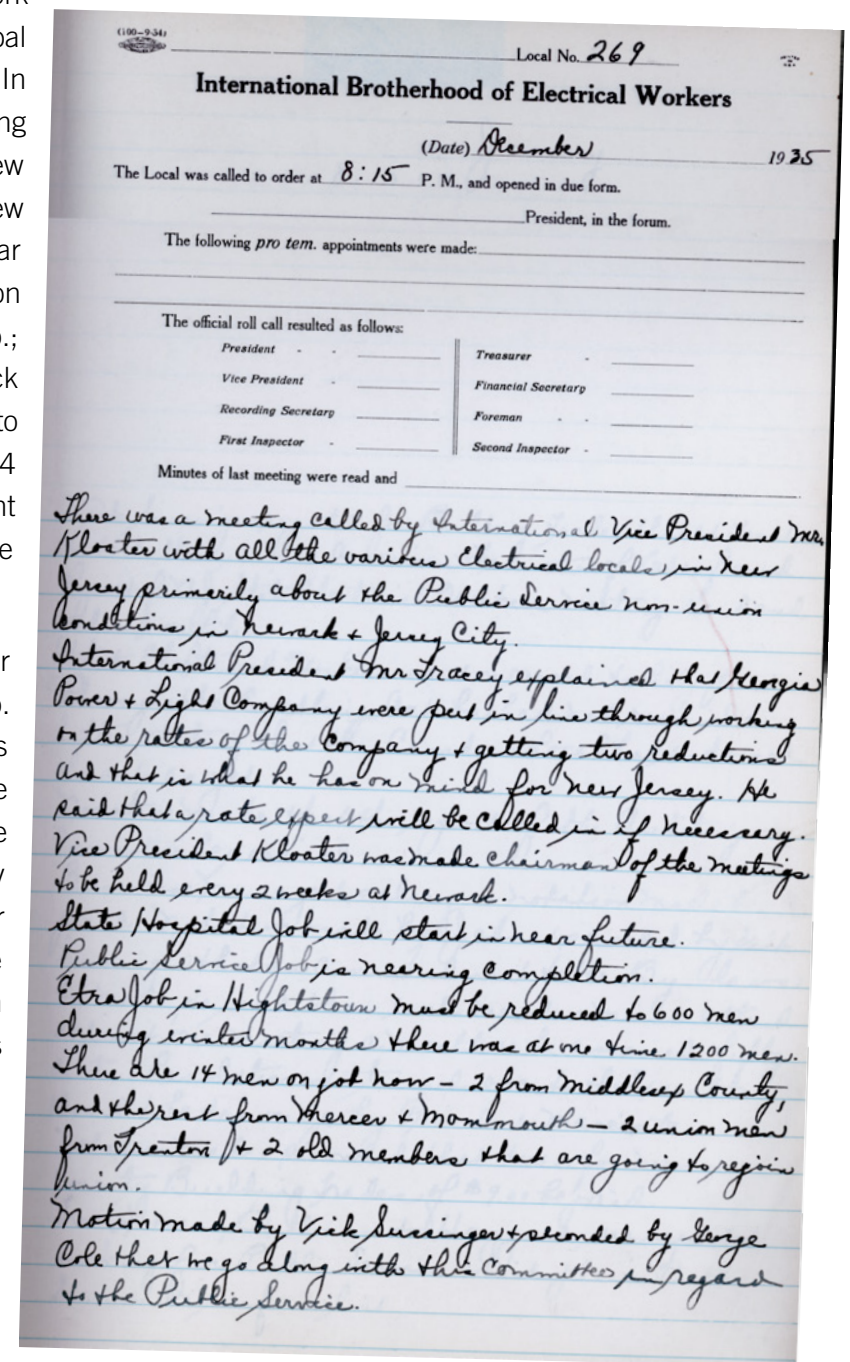 (100-9-34)
Local No. 269
International Brotherhood of Electrical Workers
(Date) December 1935
The Local was called to order at 8:15 P. M., and opened in due form.
President, in the forum.
The following pro tem. appointments were made:
The official roll call resulted as follows:
President - -
Vice President -
Recording Secretary
First Inspector -
Treasurer -
Financial Secretary
Foreman - -
Second Inspector -
Minutes of last meeting were read and
There was a meeting called by International Vice President Mr.
Kloater with all the various Electrical locals in New
Jersey primarily about the Public Service non-union
conditions in Newark + Jersey City.
International President Mr Tracey explained that Georgia
Power + Light Company were put in line through working
on the rates of the Company + getting two reductions
and that is what he has on mind for New Jersey. He
said that a rate expert will be called in if necessary.
Vice President Kloater was made chairman of the meetings
to be held every 2 weeks at Newark.
State Hospital Job will start in near future.
Public Service Job is nearing completion.
Etra Job in Hightstown must be reduced to 600 men
during winter months there was at one time 1200 men.
There are 14 men on job now - 2 from Middlesex County,
and the rest from Mercer + Mommouth - 2 union men
from Trenton + 2 old members that are going to rejoin
union.
Motion made by Vick Sussinger + seconded by George
Cole that we go along with this Committee in regard
to the Public Service.